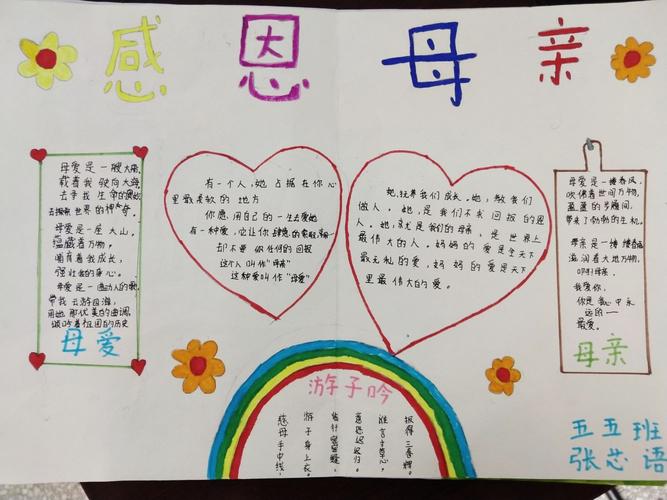 感恩母亲
母爱是一艘大船,
载着我驶向大海
去寻找生命的奥妙
去探索世界的神奇。
母爱是一座大山,
蕴藏着万物,
哺育着我成长,
强壮着我的身心。
母爱是一曲动人的歌,
带我云游四海,
用她那优美的曲调,
倾吟着祖国的历史
母爱
有一个人,她占据在你心
里最柔软的地方
你愿用自己的一生去爱她
有一种爱,它让你肆意的索取
却不要你任何的回报
这个人叫作"母亲"
这种爱叫作"母爱"
她,抚养我们成长。她,教我们
做人。她,是我们不求回报的恩
人。她,就是我们的母亲,是世界上
最伟大的人。妈妈的爱是全天下
最无私的爱,妈妈的爱是天下
里最伟大的爱。
母爱是一缕春风,
吹拂着世间万物,
带来了勃勃的生机。
母亲是一缕
滋润着大地万物,
母亲,
我爱你,
你是我心中永
远的一
最爱。
母亲
游子吟
慈母手中线,
游子身上衣。
临行密密缝,
意恐迟迟归。
谁言寸草心,
报得三春晖。
五五班
张芯语